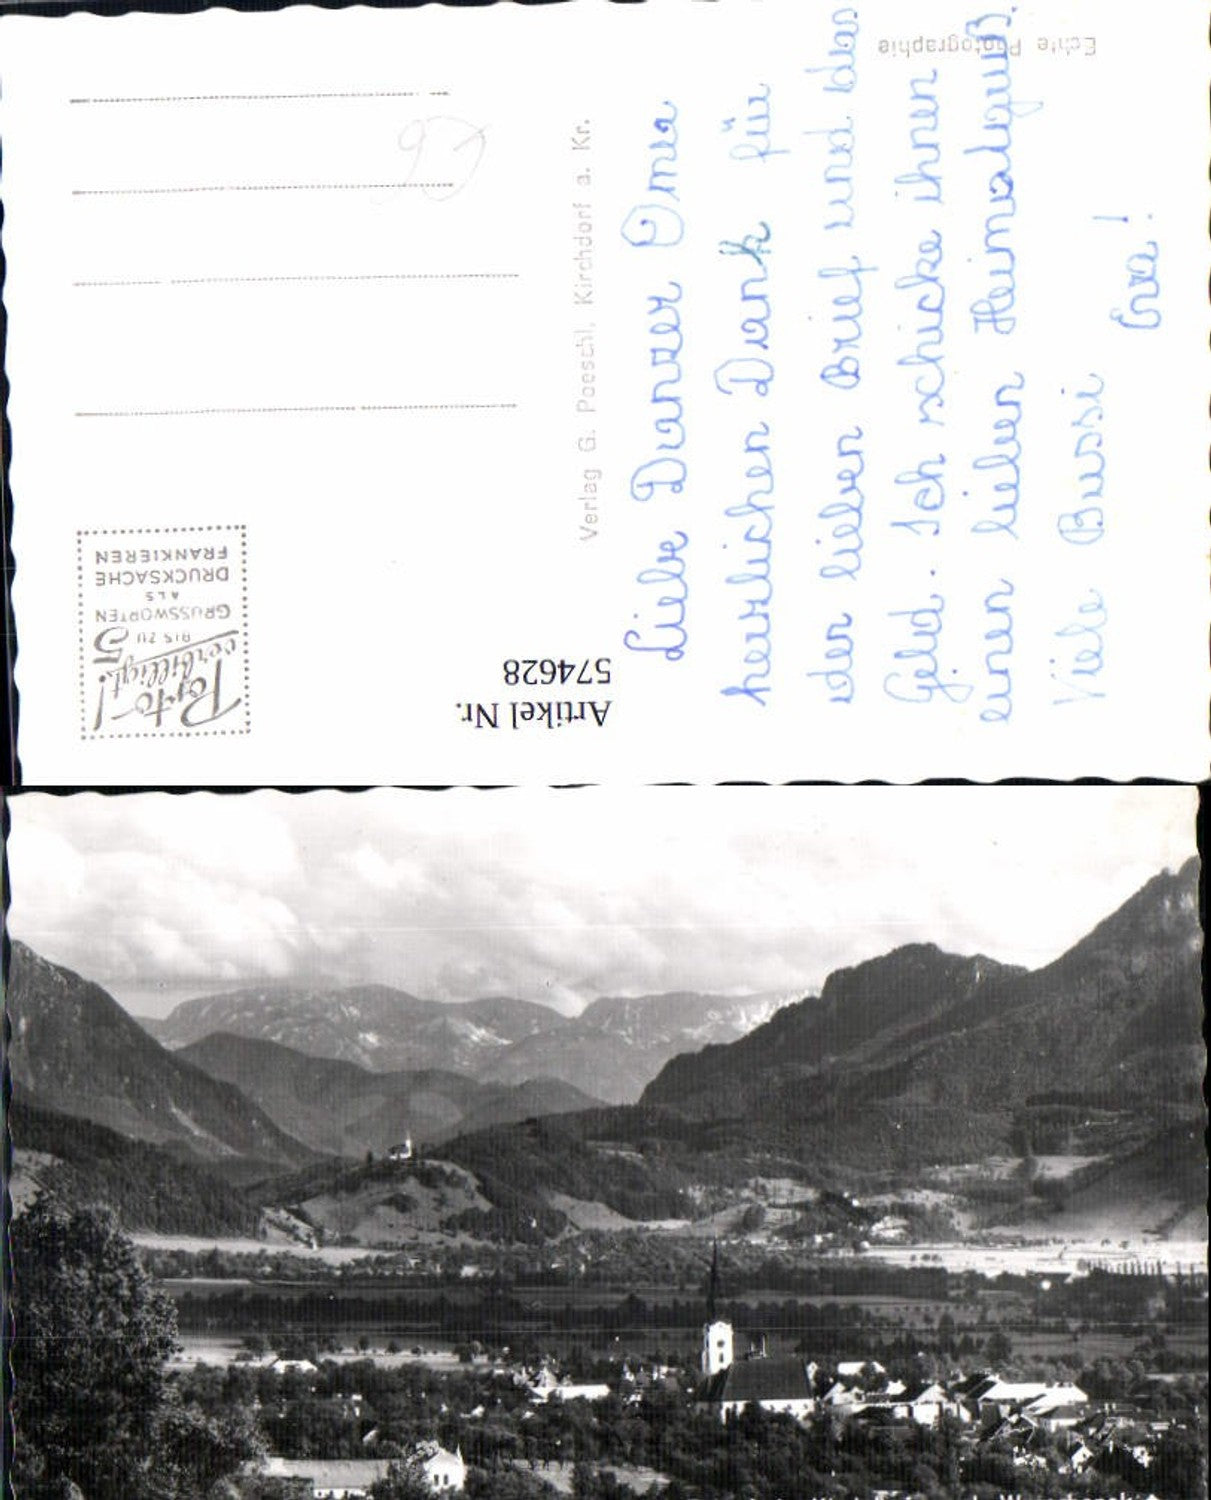 Echte Photographie
Liebe Danzer Oma
herzlichen Dank für
den lieben Brief und das
Geld. Ich schicke ihnen
einen lieben Heimatgruß.
Viele Bussi
Eva!
Verlag G. Poeschl, Kirchdorf a. Kr.
Porto-!
verbilligt!
BIS ZU 5
GRUSSWORTEN
ALS
DRUCKSACHE
FRANKIEREN
Artikel Nr.
574628